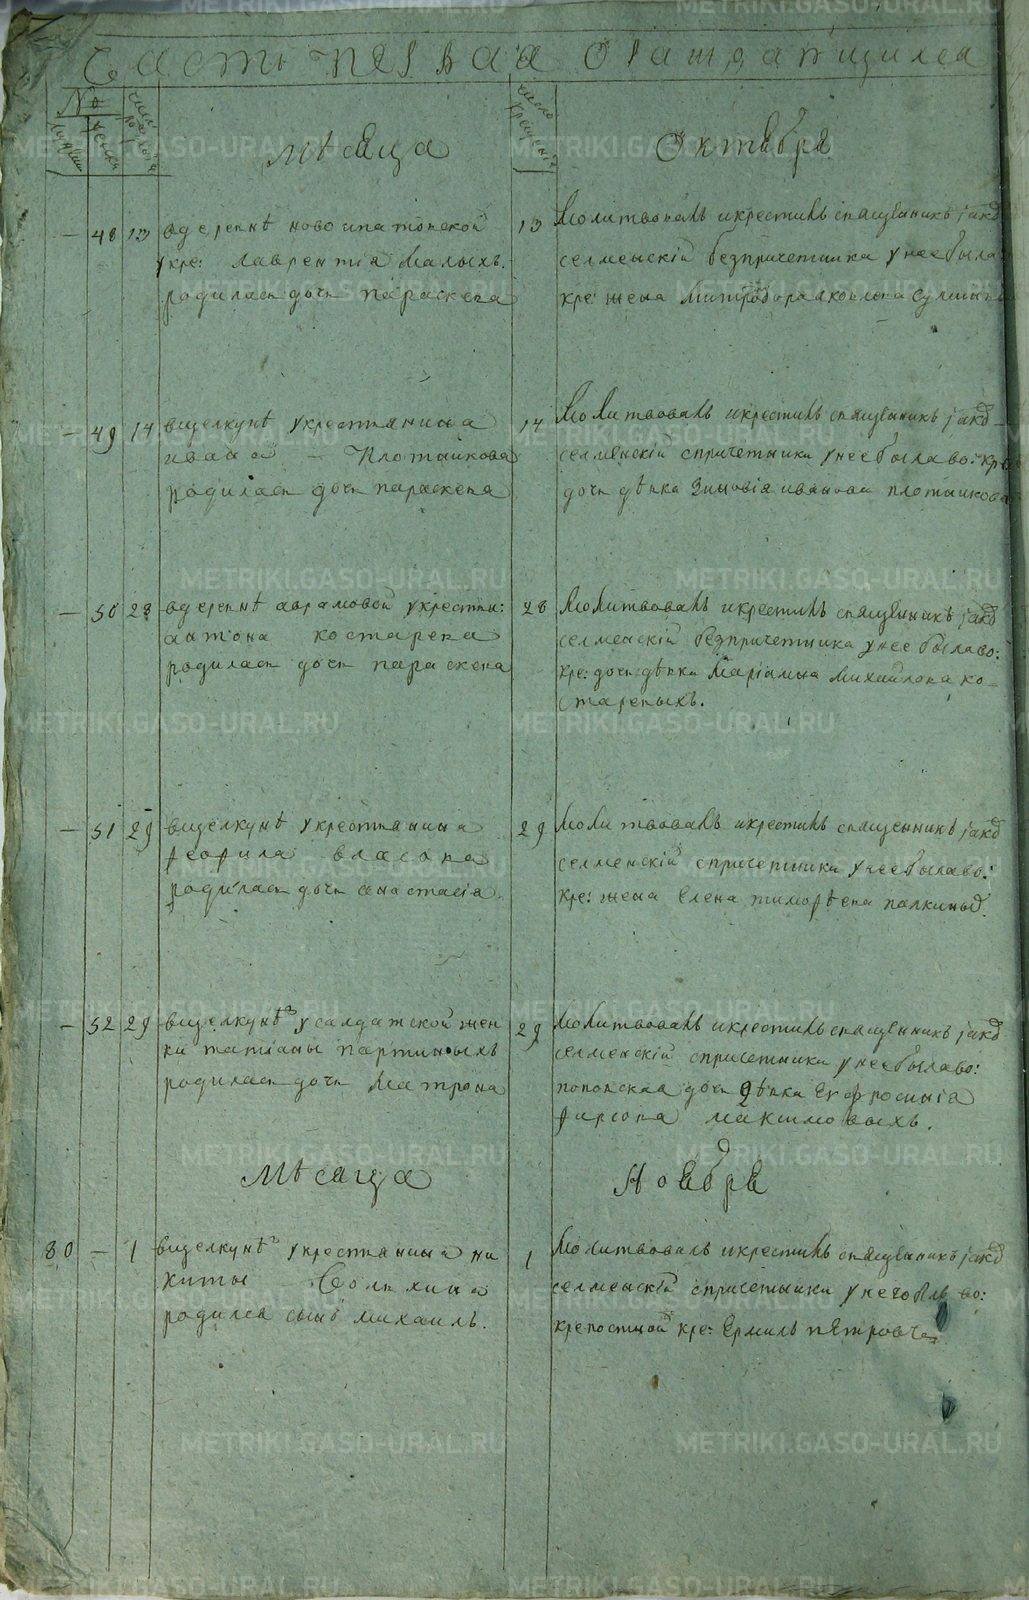 Часть первая о раждающихся
№
мѣсяца Октября
48 13 вдеревнѣ новоипатовской
укре: лаврентіа Малыхъ.
родилась дочь параскева
13 Молитвовалъ икрестилъ священникъ
селменскій безпричетника унее была
кре: жена
49 14 вщелкунѣ укрестянина
ивана Плотникова
родилась дочь параскева
14 Молитвовалъ икрестилъ священникъ
селменскій спричетники унее была во: кре
дочь дѣвка Зиновія иванова плотникова
50 28 вдеревнѣ аврамовой укрестьи:
антона костарева
родилась дочь параскева
28 Молитвовалъ икрестилъ священникъ
селменскій безпричетника унее была во:
кре: дочь дѣвка Маріамна Михайлова ко-
старевыхъ.
51 29 вщелкунѣ укрестянина
феофила власова
родилась дочь анастасіа.
29 Молитвовалъ икрестилъ священникъ
селменскій спричетники унее была во:
кре: жена Елена тимофѣева палкиныхъ.
52 29 вщелкунѣ усалдатской жен
ки татіаны партиныхъ
родилась дочь Матрона
29 Молитвовалъ икрестилъ священникъ
селменскій спричетники унее была во:
поповская дочь дѣвка Ефросиніа
фирсова максимовыхъ.
мѣсяца Ноября
80 1 вщелкунѣ укрестянина ни
киты
родился сынъ михаилъ.
1 Молитвовалъ икрестилъ священникъ
селменскій спричетники унего былъ во:
крепостной кре: Ермилъ пѣтровъ
METRIKI.GASO-URAL.RU